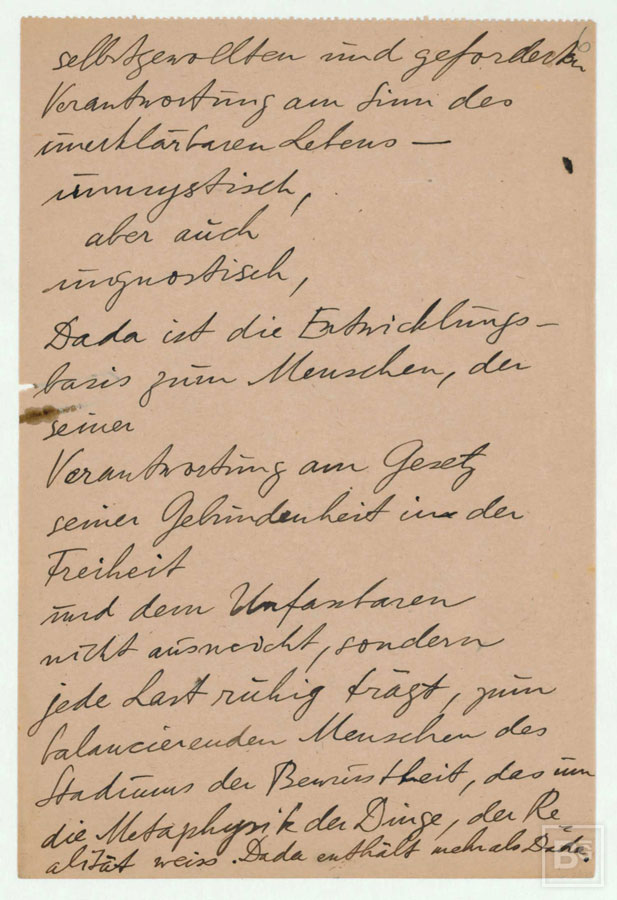 selbstgewollten und geforderten
Verantwortung am Sinn des
unerklärbaren Lebens —
unmystisch,
aber auch
ungnostisch,
Dada ist die Entwicklungs-
basis zum Menschen, der
seiner
Verantwortung am Gesetz
seiner Gebundenheit in der
Freiheit
und dem Unfassbaren
nicht ausweicht, sondern
jede Last ruhig trägt, zum
balancierenden Menschen des
Stadiums der Bewusstheit, das um
die Metaphysik der Dinge, der Re
alität weiss. Dada enthält mehr als Dada.
BG